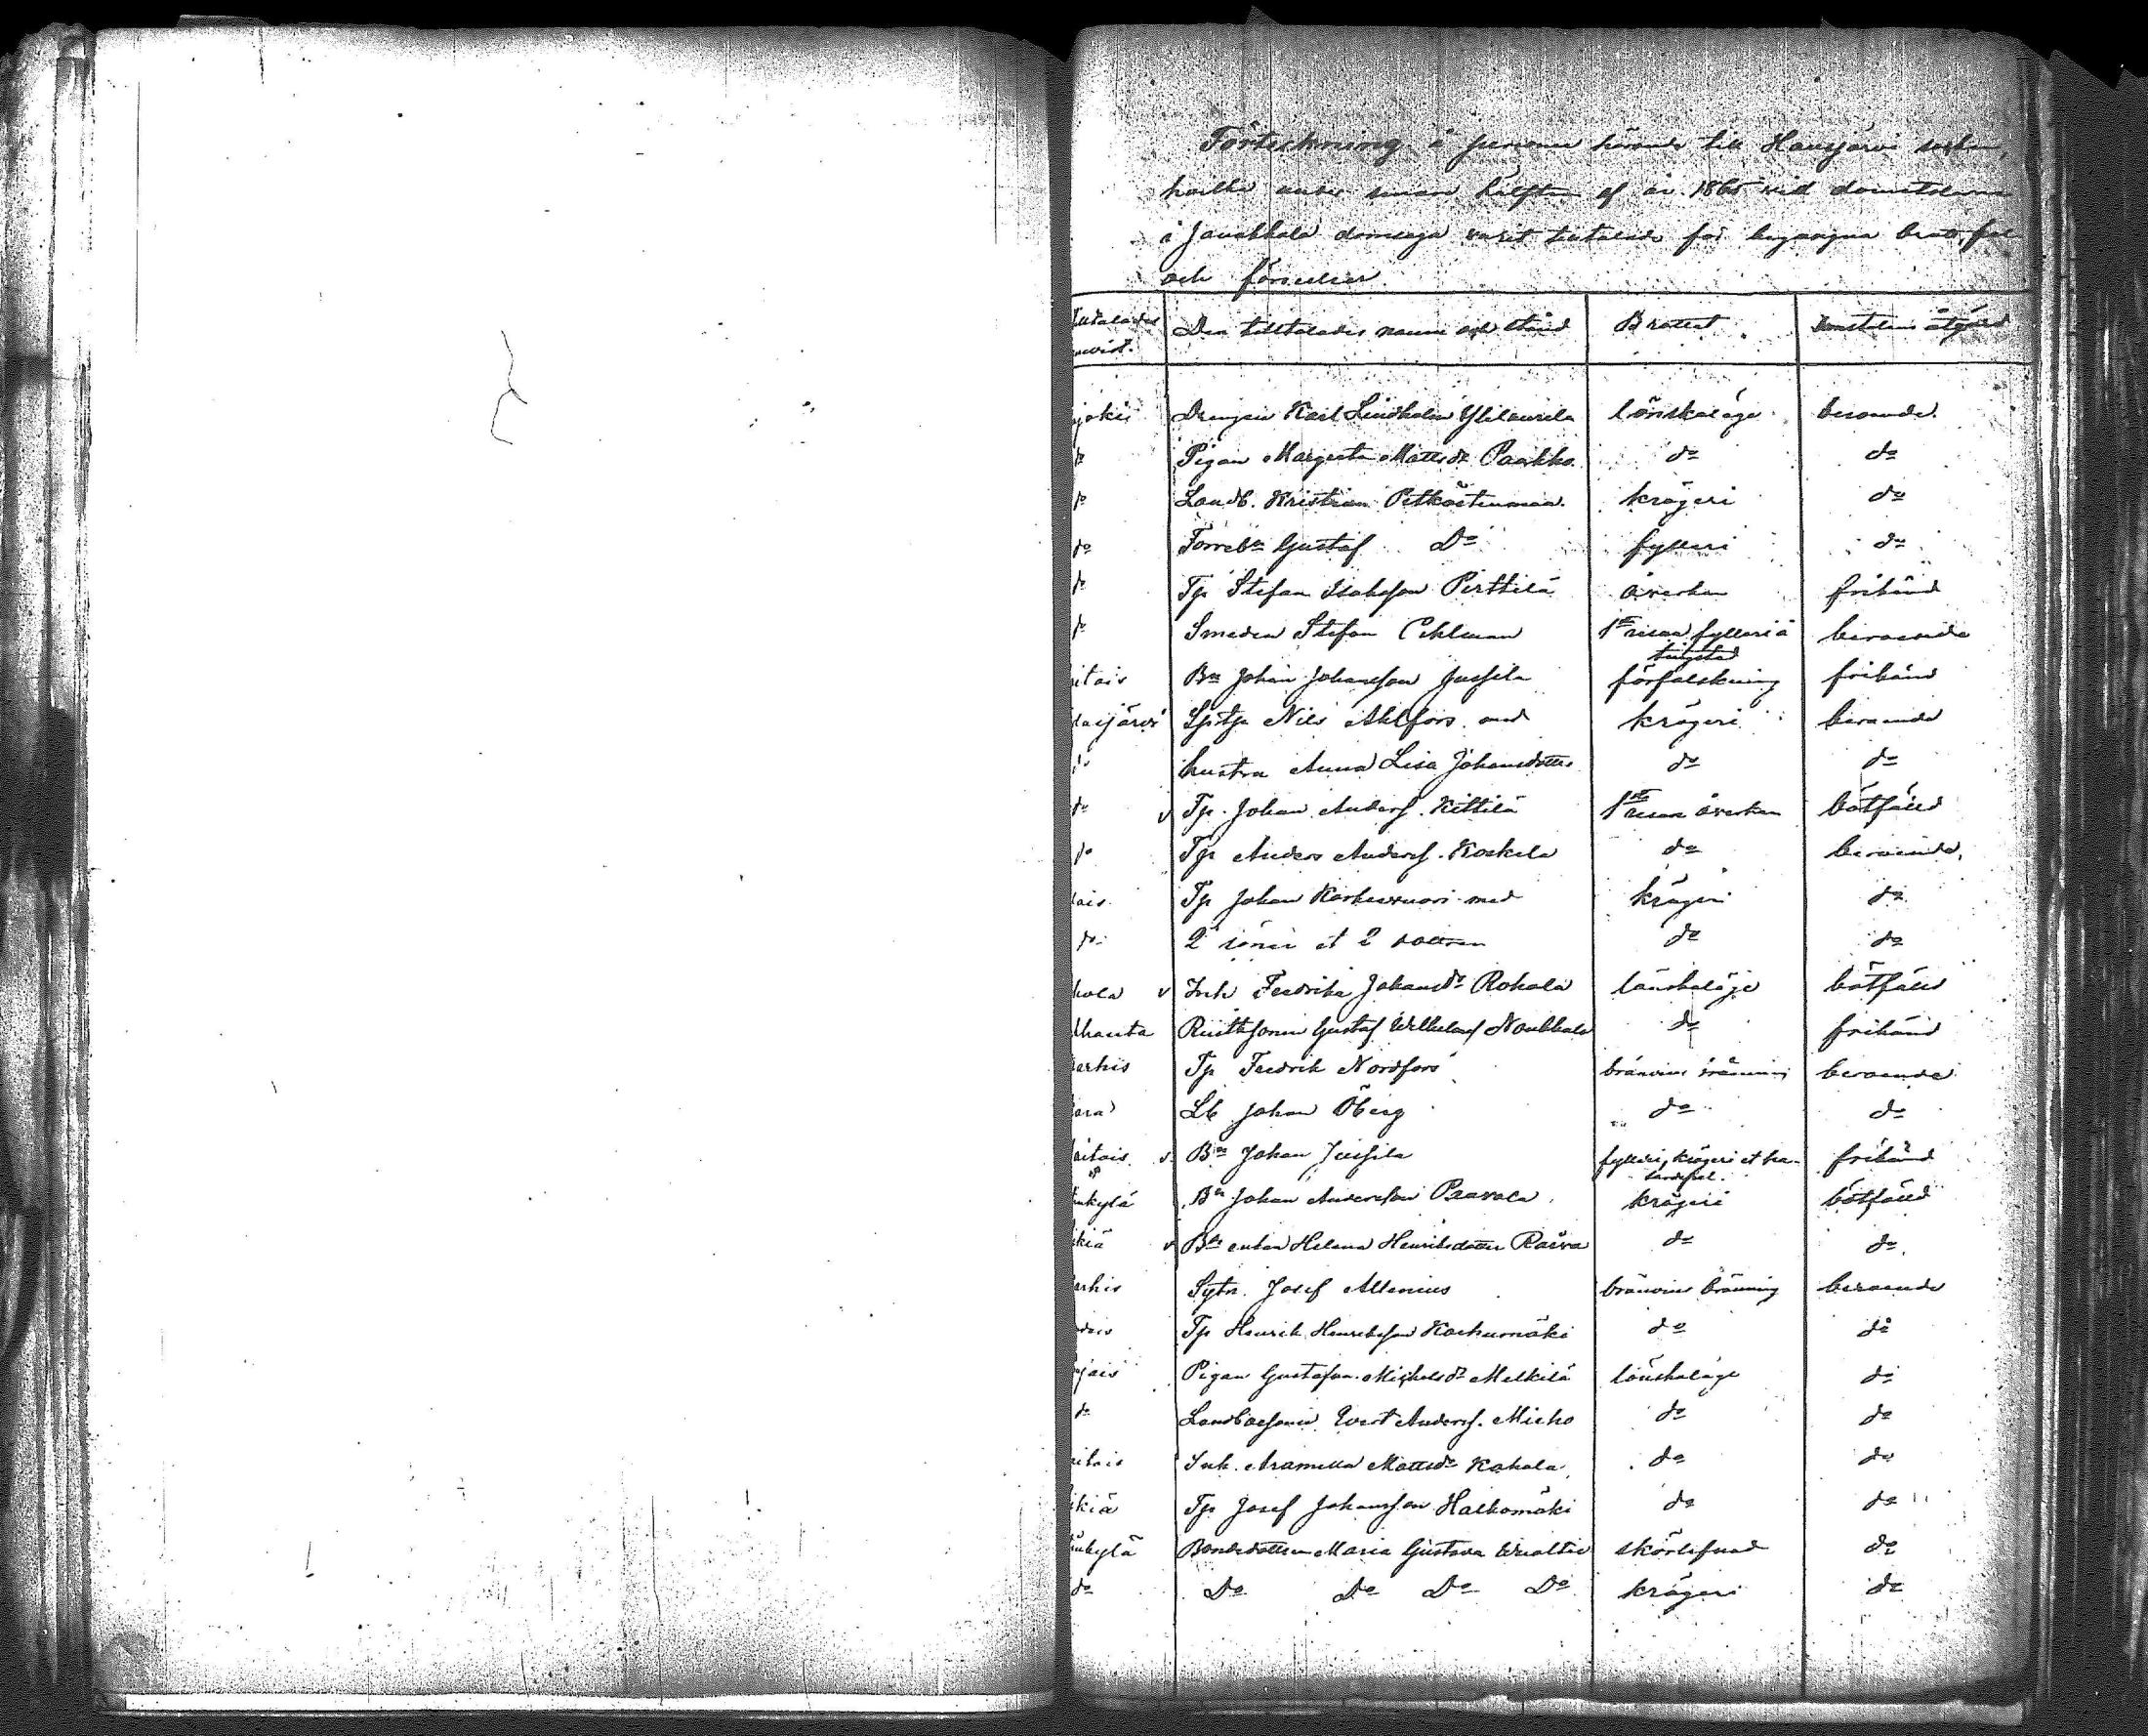 Förteckning å personer hörande till Hausjärvi socken,
hvilka under senare hälften af år 1865 vid domstolarne
i Janakkala domsaga varit tilltalade för begångna brott, fel
och förseelser.
Tilltalades Den tilltalades namn och stånd Brottet Domstolens åtgärd
hemvist.
jokis Drengen Karl Lindholm Ylitaurila lönskaläge beroende.
do Pigan Margreta Mattsdr Paakko do do
do Landb. Kristian Pitkästenmaa. krögeri do
do Torrebn Gustaf Do fylleri do
do Tp Stefan Isaksson Perttilä åverkan frikänd
do Smeden Stefan Ceklman 1sta resan fylleri å beroende
tingstad
itais Bn Johan Johansson Jussila förfalskning frikänd
Hausjärvi Spitp Nils Ahlfors med krögeri beroende
do hustru Anna Lisa Johansdotter do do
do v Tp. Johan Andersf. Kittilä 1sta resan åverkan bötfälld
do Tp Anders Andersf. Koskela do beroende,
ais. Tp Johan Karhuvuori med krögeri do
do 2 söner et 2 döttrar do do
kola v Inh Fredrika Johansdr Rokala lönskaläge bötfälld
lhausta Rusthsonen Gustaf Wilhelmsf Naukkala do frikänd
arhis Tp Fredrik Nordfors bränvins bränning beroende
ara Lb Johan Öberg do do
itais v. Bn Johan Jussila fylleri, krögeri et frikänd
ukylä Bn Johan Andersson Paavola krögeri bötfälld
kiä v Bde enkan Helena Henriksdotter Raiva do do.
arhis Sytn. Josef Allenius bränvins bränning beroende
Tp Henrik Henriksson Korhumäki do do
jais Pigan Gustafva Michelsdr Melkilä lönskaläge do
do Landbosonen Evert Andersf. Micko do do
itais Inh. Aramilla Mattsdr Kahala do do
kiä Tp Josef Johansson Halkomäki do do
ukylä Bondedottern Maria Gustava do
do Do Do Do Do krögeri do